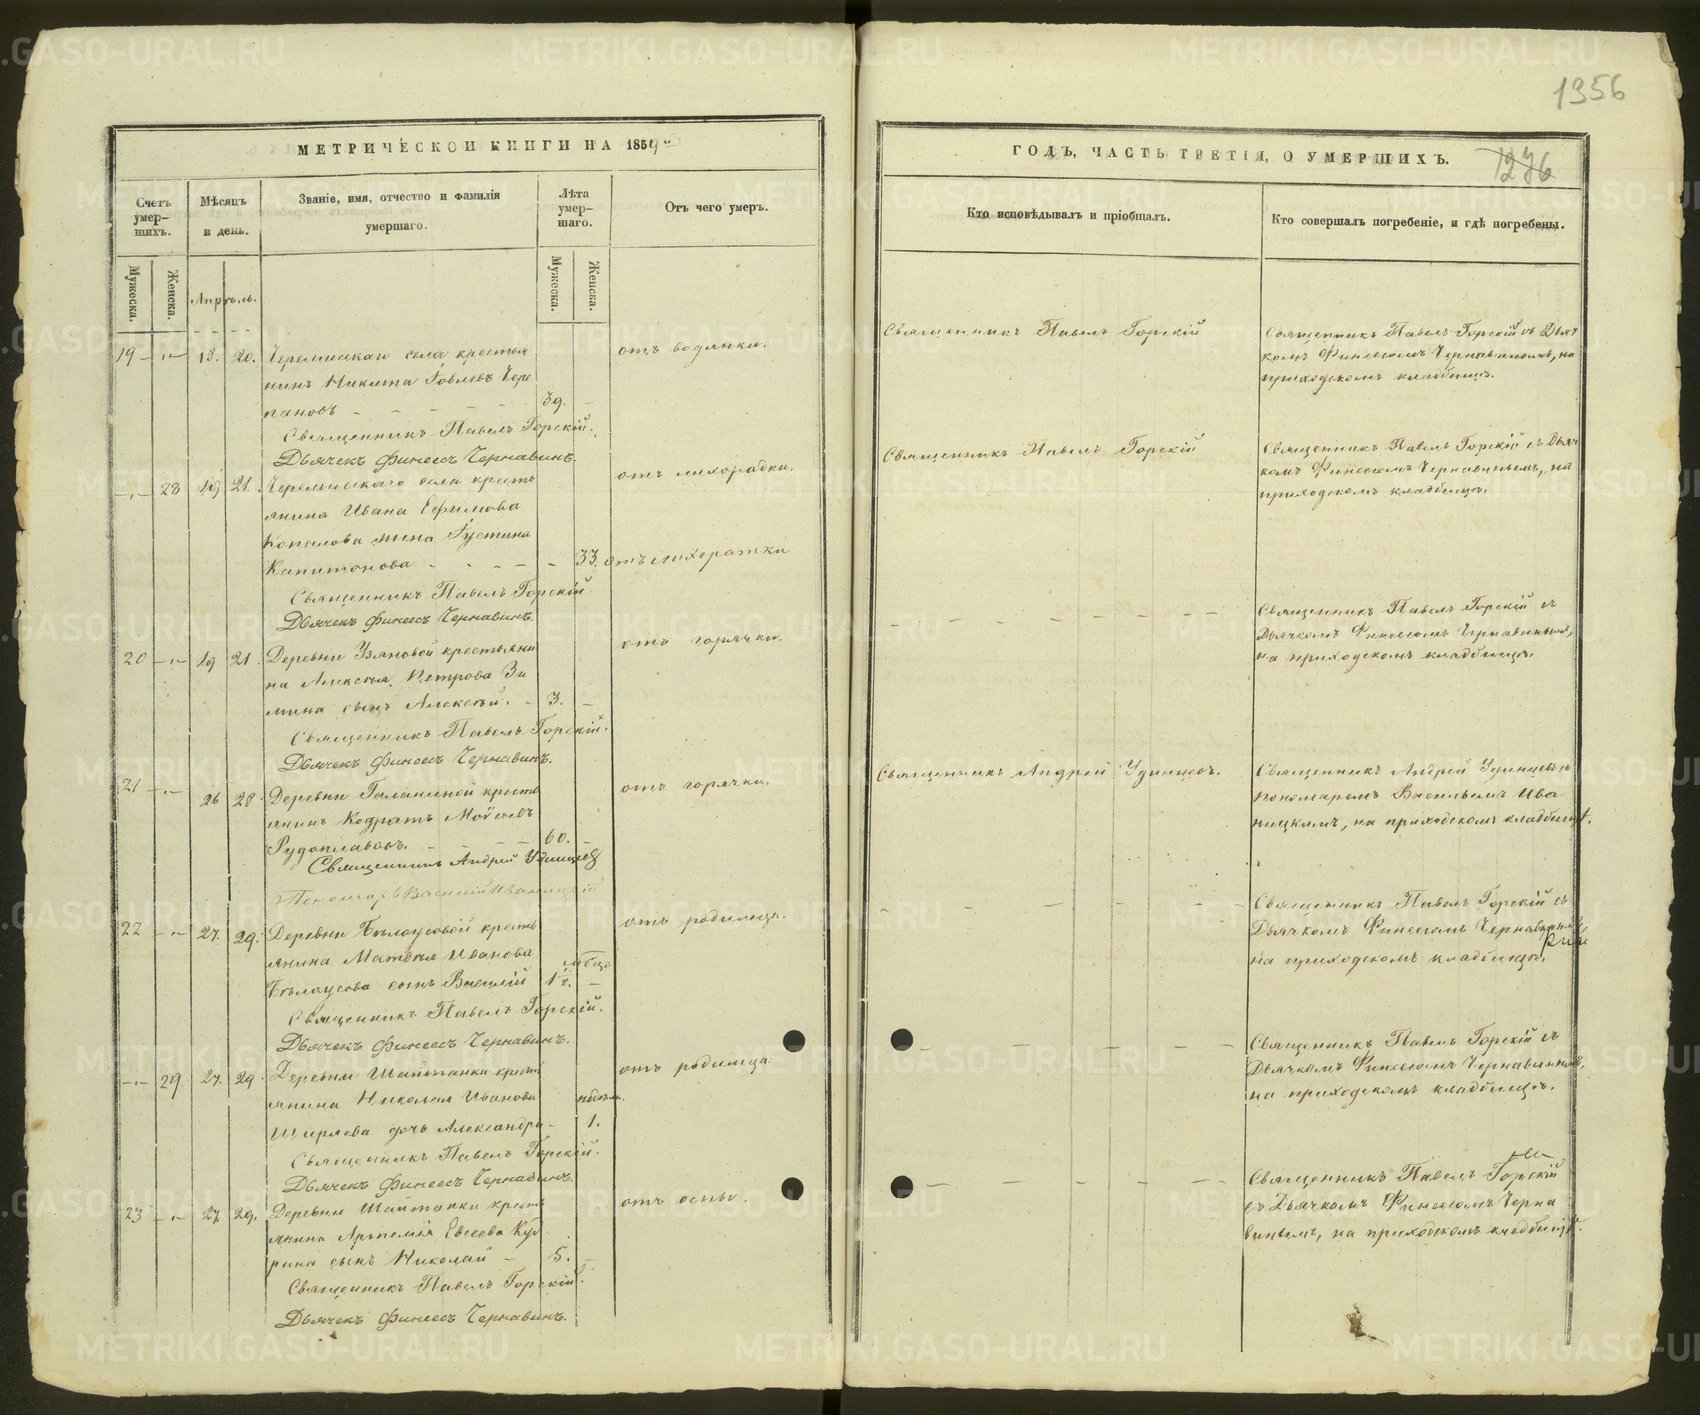 1356
МЕТРИЧЕСКОЙ КНИГИ НА 1854й
ГОДЪ, ЧАСТЬ ТРЕТІЯ, О УМЕРШИХЪ.
1276
Счетъ умер-шихъ.
Мѣсяцъ и день.
Званіе, имя, отчество и фамилія умершаго.
Лѣта умер-шаго.
Отъ чего умеръ.
Кто исповѣдывалъ и пріобщалъ.
Кто совершалъ погребеніе, и гдѣ погребены.
Мужеска.
Женска.
Мужеска.
Женска.
Апрѣль.
19 18. 20. Черемисскаго села крестья
нинъ Никита Іовлевъ Чере
пановъ 39.
отъ водянки.
Священникъ Павелъ Горскій
Священникъ Павелъ Горскій съ Дьяч
комъ Финеесомъ Чернавинымъ, на
приходскомъ кладбищѣ.
Священникъ Павелъ Горскій.
Дьячекъ Финеесъ Чернавинъ.
28 19 21. Черемисскаго села кресть
янина Ивана Ефимова
Копалова жена Іустина
Капитонова 33. отъ лихоратки
отъ лихорадки.
Священникъ Павелъ Горскій
Священникъ Павелъ Горскій съ Дьяч
комъ Финеесомъ Чернавинымъ, на
приходскомъ кладбищѣ.
Священникъ Павелъ Горскій.
Дьячекъ Финеесъ Чернавинъ.
20 19 21. Деревни Узяновой крестьяни
на Алексѣя Петрова Зи
мина сынъ Алексѣй. 3.
отъ горячки.
Священникъ Павелъ Горскій съ
Дьячкомъ Финеесомъ Чернавинымъ,
на приходскомъ кладбищѣ.
Священникъ Павелъ Горскій.
Дьячекъ Финеесъ Чернавинъ.
21 26 28. Деревни Галаниной кресть
янинъ Кодратъ Моѵсеевъ
Рудоплавовъ. 60.
отъ горячки.
Священникъ Андрей Удинцевъ.
Священникъ Андрей Удинцевъ съ
пономаремъ Васильемъ Ива
ницкимъ, на приходскомъ кладбищѣ.
Священникъ Андрей Удинцевъ
Пономарь Василій Иваницкій
22 27. 29. Деревни Бѣлоусовой кресть
янина Матѳея Иванова
Бѣлоусова сынъ Василій
отъ родимца.
Священникъ Павелъ Горскій съ
Дьячкомъ Финеесомъ Чернавинымъ,
на приходскомъ кладбищѣ.
Священникъ Павелъ Горскій.
Дьячекъ Финеесъ Чернавинъ.
29 27. 29. Деревни Шайтанки кресть
янина Николая Иванова
Ширяева дочь Александра 1.
отъ родимца
Священникъ Павелъ Горскій съ
Дьячкомъ Финеесомъ Чернавинымъ,
на приходскомъ кладбищѣ.
Священникъ Павелъ Горскій.
Дьячекъ Финеесъ Чернавинъ.
23 27. 29. Деревни Шайтанки кресть
янина Артемія Евсеева Кур
рина сынъ Николай 5.
отъ оспы.
Священникъ Павелъ Горскій
съ Дьячкомъ Финеесомъ Черна
винымъ, на приходскомъ кладбищѣ.
Священникъ Павелъ Горскій.
Дьячекъ Финеесъ Чернавинъ.
METRIKI.GASO-URAL.RU